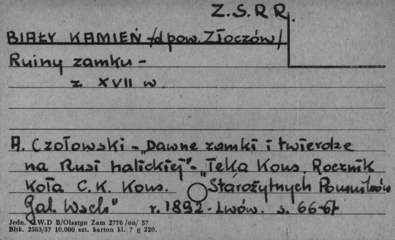 Z.S.R.R.
BIAŁY KAMIEŃ /d pow. Złoczów/
Ruiny zamku -
z XVII w.
A. Czołowski - „Dawne zamki i twierdze
na Rusi halickiej" - „Teka Kons. Rocznik
Koła C.K. Kons. Starożytnych Pomników
Gal. Wsch" r. 1892 - Lwów. s. 66-67
Jedn. R.W.D B/Olsztyn Zam 2776/on/57
Bltk. 2563/57 10.000 szt. karton kl. 7 g 220.